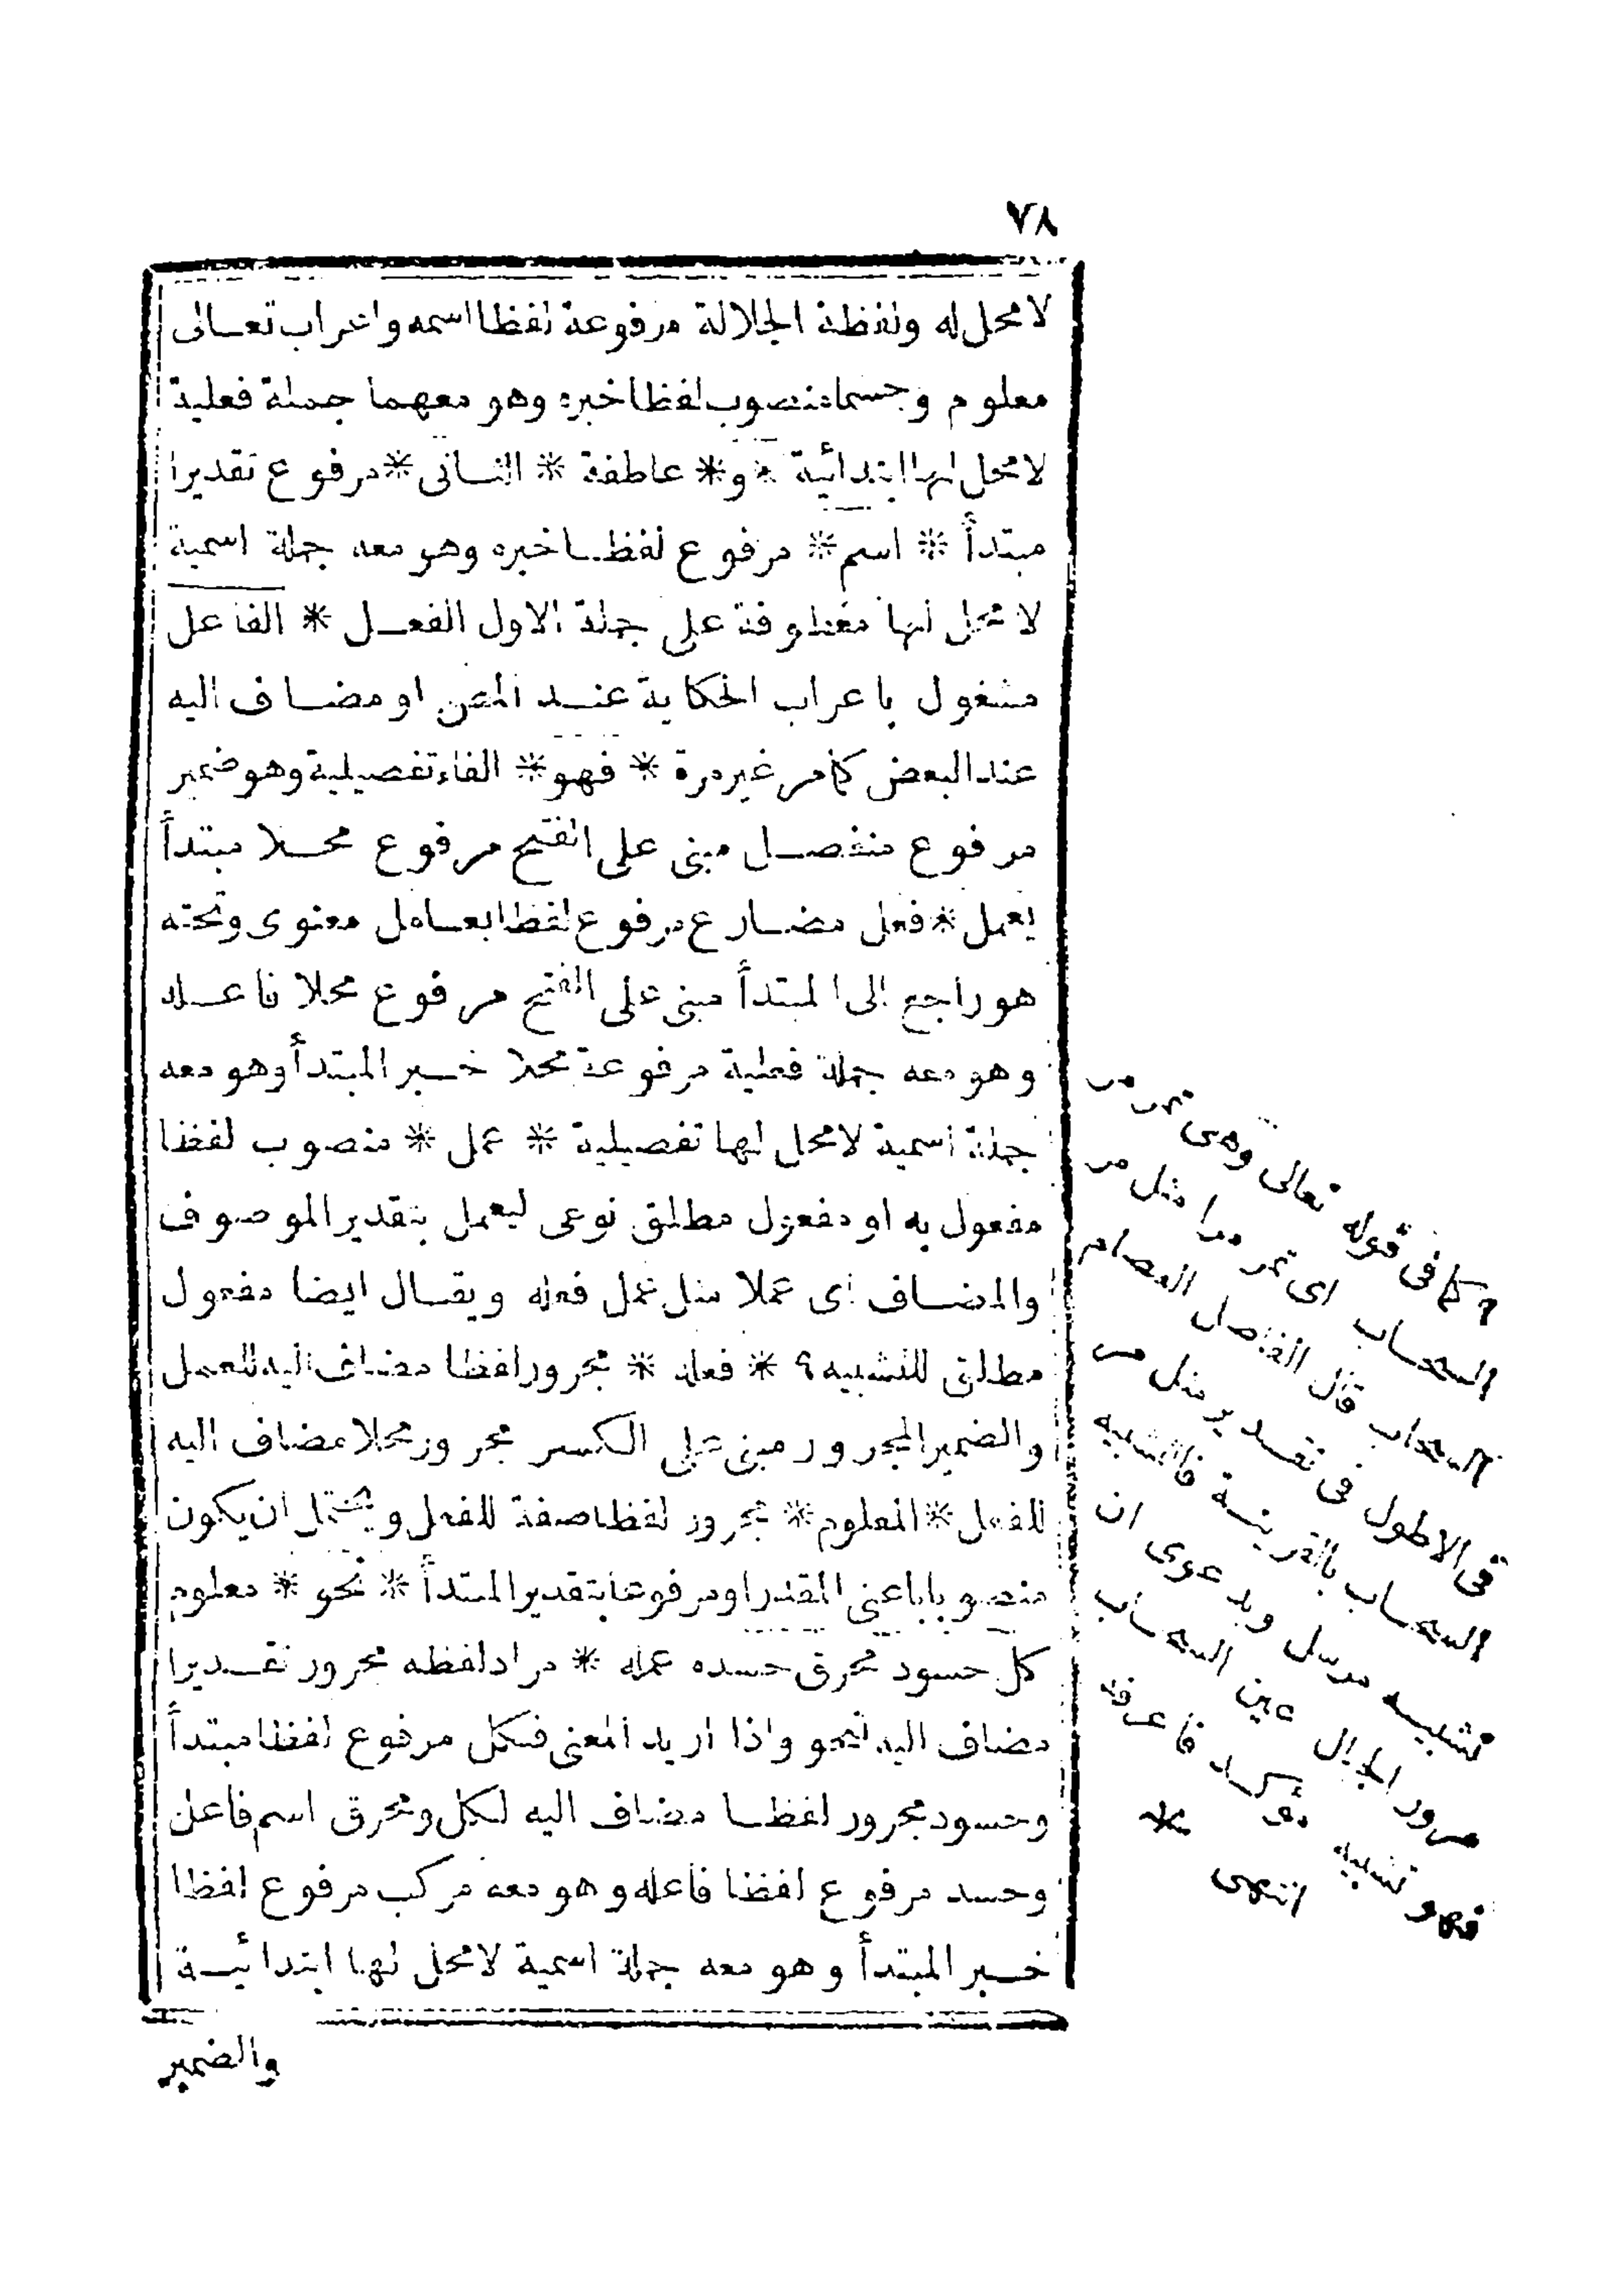 ٧٨
لا محل له ولفظة الجلالة مرفوعة لفظا اسمه واعراب تعالى
معلوم وجسما منصوب لفظا خبره وهو معهما جملة فعلية
لا محل لها ابتدائية * و * عاطفة * الثانى * مرفوع تقديرا
مبتدأ * اسم * مرفوع لفظا خبره وهو معه جملة اسمية
لا محل لها معطوفة على جملة الاول الفعل * الفاعل
مشغول باعراب الحكاية عند المص او مضاف اليه
عند البعض كما مر غير مرة * فهو * الفاء تفصيلية وهو ضمير
مرفوع منفصل مبنى على الفتح مرفوع محلا مبتدأ
يعمل * فعل مضارع مرفوع لفظا بعامل معنوى وتحته
هو راجع الى المبتدأ مبنى على الفتح مرفوع محلا فاعله
وهو معه جملة فعلية مرفوعة محلا خبر المبتدأ وهو معه
جملة اسمية لا محل لها تفصيلية * عمل * منصوب لفظا
مفعول به او مفعول مطلق نوعى ليعمل بتقدير الموصوف
والمضاف اى عملا مثل عمل فعله ويقال ايضا مفعول
مطلق للتشبيه ٩ * فعله * مجرور لفظا مضاف اليه للعمل
والضمير المجرور مبنى على الكسر مجرور محلا مضاف اليه
للفعل * المعلوم * مجرور لفظا صفة للفعل ويحتمل ان يكون
منصوبا باعنى المقدر او مرفوعا بتقدير المبتدأ * نحو * معلوم
كل حسود محرق حسده عمله * مراد لفظه مجرور تقديرا
مضاف اليه لنحو واذا اريد المعنى فكل مرفوع لفظا مبتدأ
وحسود مجرور لفظا مضاف اليه لكل ومحرق اسم فاعل
وحسد مرفوع لفظا فاعله وهو معه مركب مرفوع لفظا
خبر المبتدأ وهو معه جملة اسمية لا محل لها ابتدائية
والضمير
٩ كما فى قوله تعالى وهى تمر مر
السحاب اى تمر مرا مثل مر
السحاب قال الفاضل العصام
فى الاطول فى تقدير مثل مر
السحاب بالقرينة فالتشبيه
تشبيه مرسل وبدعوى ان
مرور الجبال عين السحاب
فهو تشبيه مؤكد فاعرفه
انتهى *